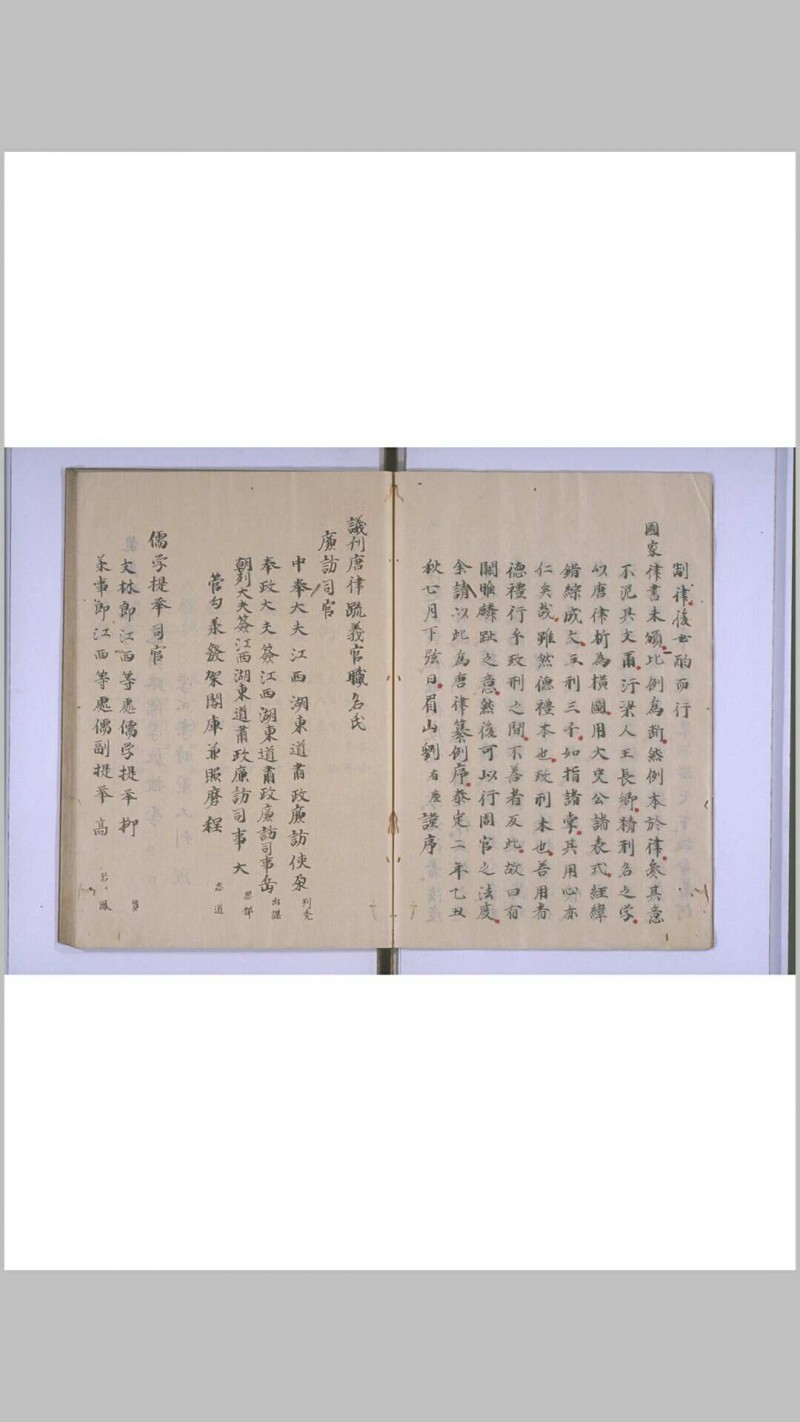 制律後世酌而行
國家律書未頒比例為斷然例本於律參其意
不泥其文爾汴梁人王長卿精刑名之学
以唐律析為橫圖用太史公諸表式經緯
錯綜成文五刑三千如指諸掌其用心亦
仁矣哉雖然德禮本也政刑末也善用者
德禮行乎政刑之間不善者反此故曰有
關雎麟趾之意然後可以行周官之法度
余請以此為唐律纂例序泰定二年乙丑
秋七月下弦日眉山劉有慶謹序
議刊唐律疏義官職名氏
廉訪司官
中奉大夫江西湖東道肅政廉訪使朶列禿
奉政大夫簽江西湖東道肅政廉訪司事岳出謀
朝列大夫簽江西湖東道肅政廉訪司事大思都
管勾承發架閣庫兼照磨程志道
儒学提举司官
文林郎江西等處儒学提举柳貫
承事郎江西等處儒副提举高若鳳